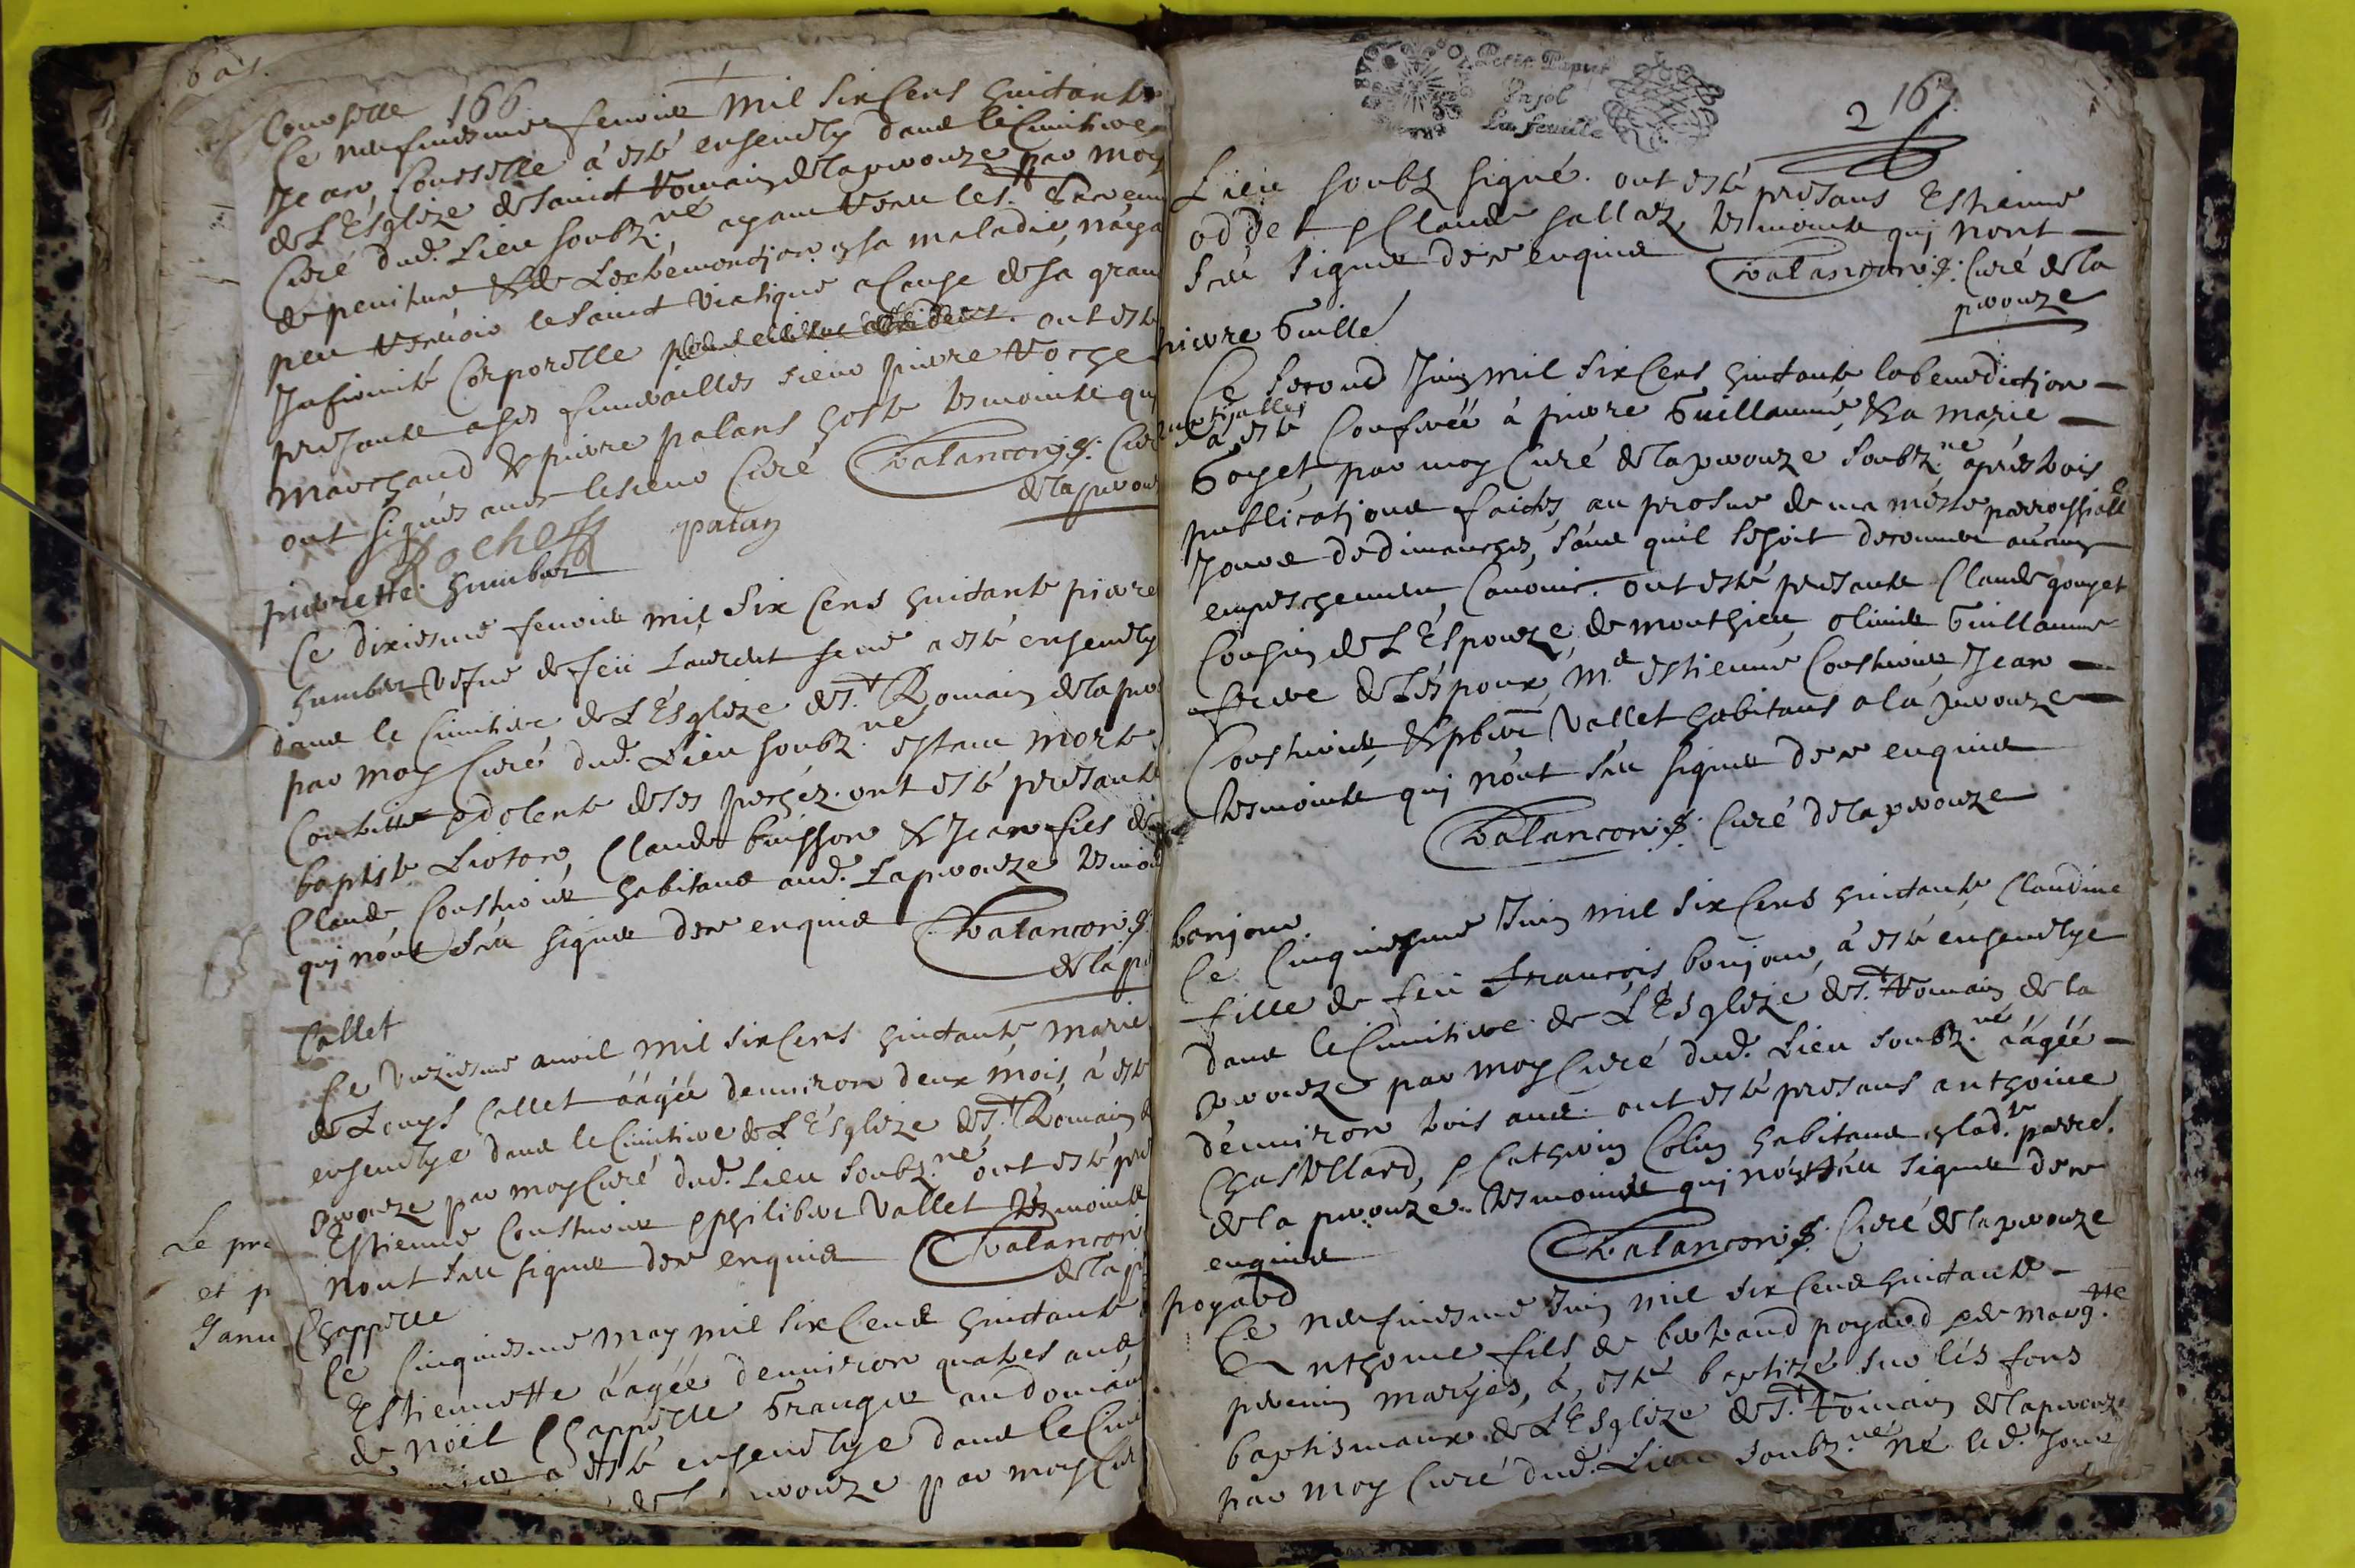 bas.
Consselle 166
Ce neufuiesme feurier mil six Cens huictante
Jean, Consselle à esté enseuely dans le Cimitiere
de L'Esglize de sainct Romain de la perouze par moy
Curé dud. Lieu soubz.né ayant receu les
de penitence & de L'extremonctjon, sa maladie, n'aya
peu reseuoir le sainct viatique a Cause de sa gran
Infirmité Corporelle ont esté
presants a ses funerailles sieur pierre Roche
marchand & pierre palans hoste tesmoints qu
ont signés auec le sieur Curé Chalancon p. Cur
de la perouz
Rochett palan
pierrette humber
Ce dixiesme feurier mil six Cens huictante pierre
humber vefue de feü Laurent a esté enseuely
dans le Cimitiere de L'Esglize de St. Romain de la per
par moy Curé dud. Lieu soubz.né estant morte
Contritte & dolente de ses pechez. ont esté presants
baptiste Lioton, Claude buisson & Jean fils de
Claude Cousturier habitans aud. Laperouze tesmoi
quj nont sceu signer de ce enquis Chalancon p.
de la pe
Callet
Le vnziesme auril mil six Cens huictante marie
de Louys Callet aagée denuiron deux mois, à esté
enseuelye dans le Cimitiere de L'Esglize de St. Romain d
perouze par moy Curé dud. Lieu soubz.né ont esté pre
Estienne Cousturier & philiber Vallet tesmoints
nont sceu signer de ce enquis Chalancon
de la p
Le pre
et p
Janu
Chappelle
Ce Cinquiesme may mil six Cens huictante
Estiennette aagée denuiron quatres ans
de noël Chappelle Granger au domai
a esté enseuelye dans le Cim
perouze par moy Cur
Petit Papier
La feuille
2 167
Lieu soubz signé. ont esté presans Estienne
oddet & Claude gallaz tesmoints quj nont
sceu signer de ce enquis Chalancon p. Curé de la
perouze
pierre Guille
Ce second Juin mil six Cens huictante la benedictjon
nuptjalle
a esté Conferéé à pierre Guillaume, & a marie
Goyet, par moy Curé de la perouze soubz.né après trois
publicatjons faictes au prosne de ma messe parrossialle
Jours de dimanches, sans quil se soit decouuer aucung
empeschement Canonic. ont esté presants Claude gouyet
Cousin de L'Espouze, de monthieu oliuier Guillaume
frere de Lespoux, M.e estienne Cousturier Jean
Cousturier, & pbert Vallet habitans a la perouze
tesmoints quj nont sceu signer de ce enquis
Chalancon p. Curé de la perouze
bonjour.
Ce Cinquiesme Juin mil six Cens huictante, Claudine
fille de feü François bonjour, à esté enseuelye
dans le Cimitiere de L'Esglize de St. Romain de la
perouze par moy Curé dud. Lieu soubz.né aagéé
denuiron trois ans. ont esté presans anthoine
Chastellard, & Catherin Colin habitans en lad.te parré.
de la perouze. tesmoints quj nont sceu signer de ce
enquis Chalancon p. Curé de la perouze
poyard
Ce neufuiesme Juin mil six Cens huictante
Anthoine fils de bertrand poyard & de marg.tte
peronin mariés, à esté baptizé sur les fons
baptismaux de L'Esglize de St. Romain de la perouze
par moy Curé dud. Lieu soubz.né né led. Jour